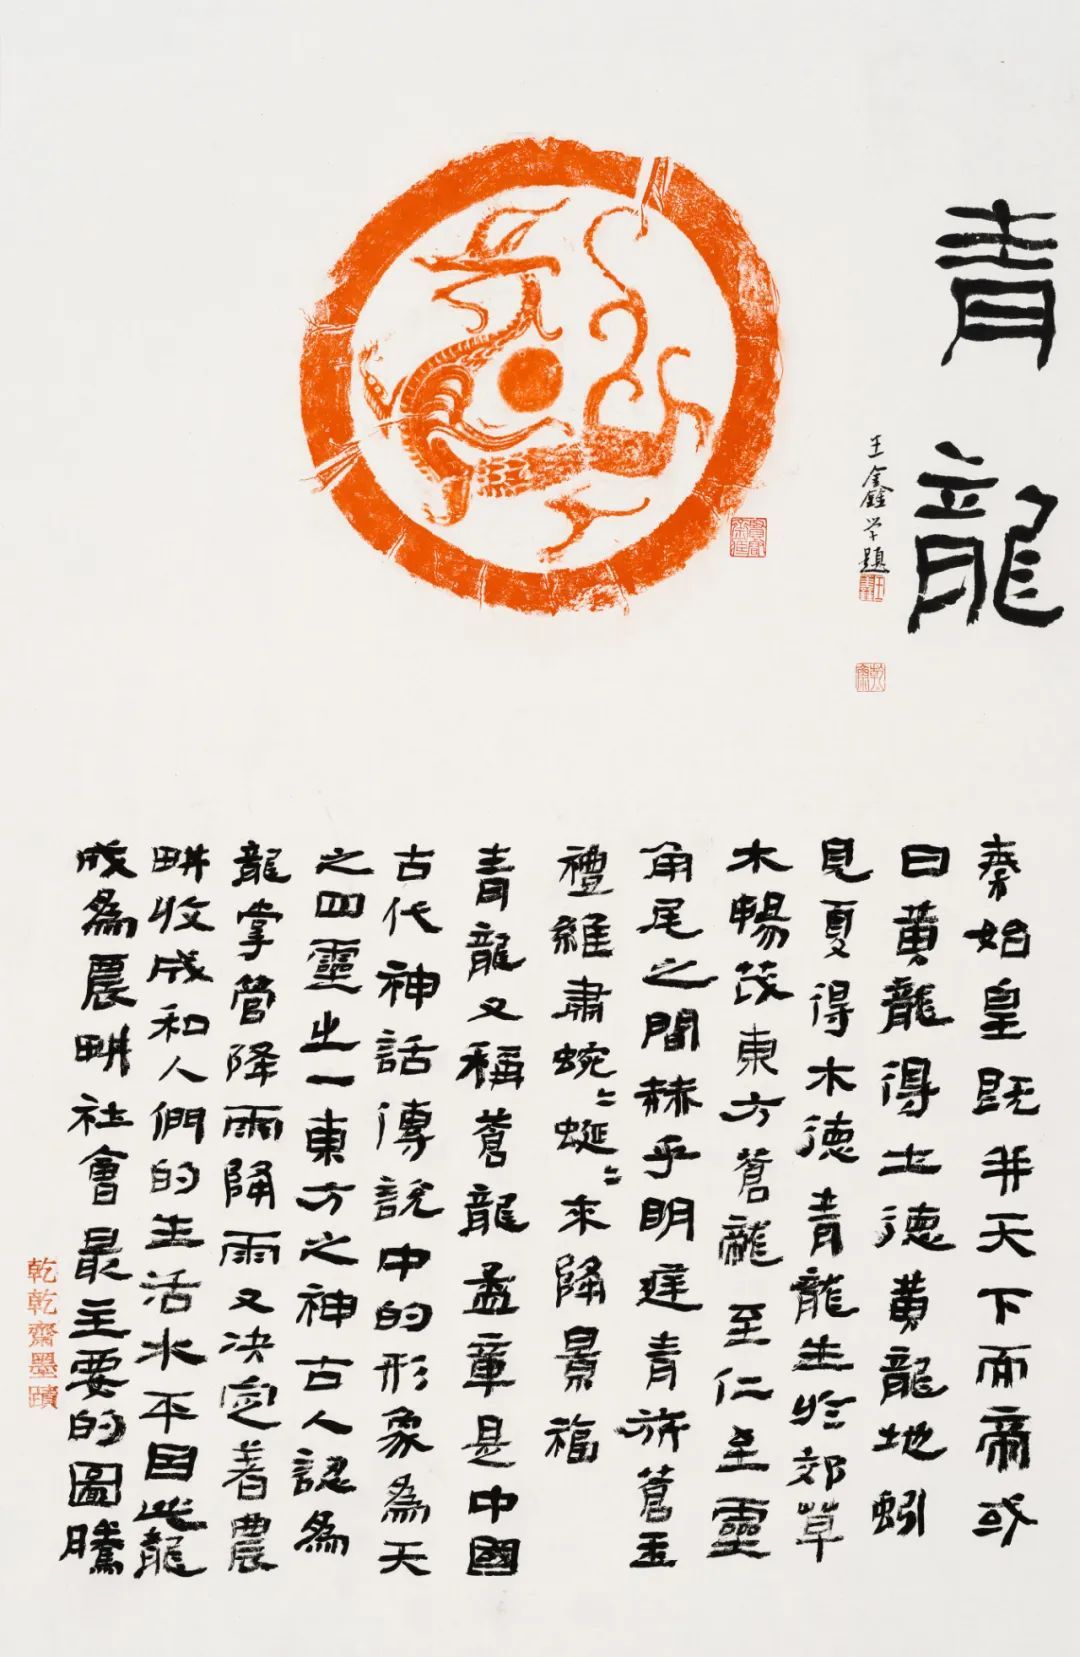 青龍
王鑫学題
秦始皇既并天下而帝或
曰黄龍得土德黄龍地蚓
見夏得木德青龍生於郊草
木暢茂東方蒼龍至仁至靈
角尾之間赫乎明遅青旂蒼玉
禮雖肅蜿〻蜒〻来降景福
青龍又稱蒼龍孟章是中國
古代神話傳説中的形象為天
之四靈之一東方之神古人認為
龍掌管降雨降雨又决定着農
畊收成和人們的生活水平因此龍
成為農畊社會最主要的圖騰
乾乾齋墨蹟